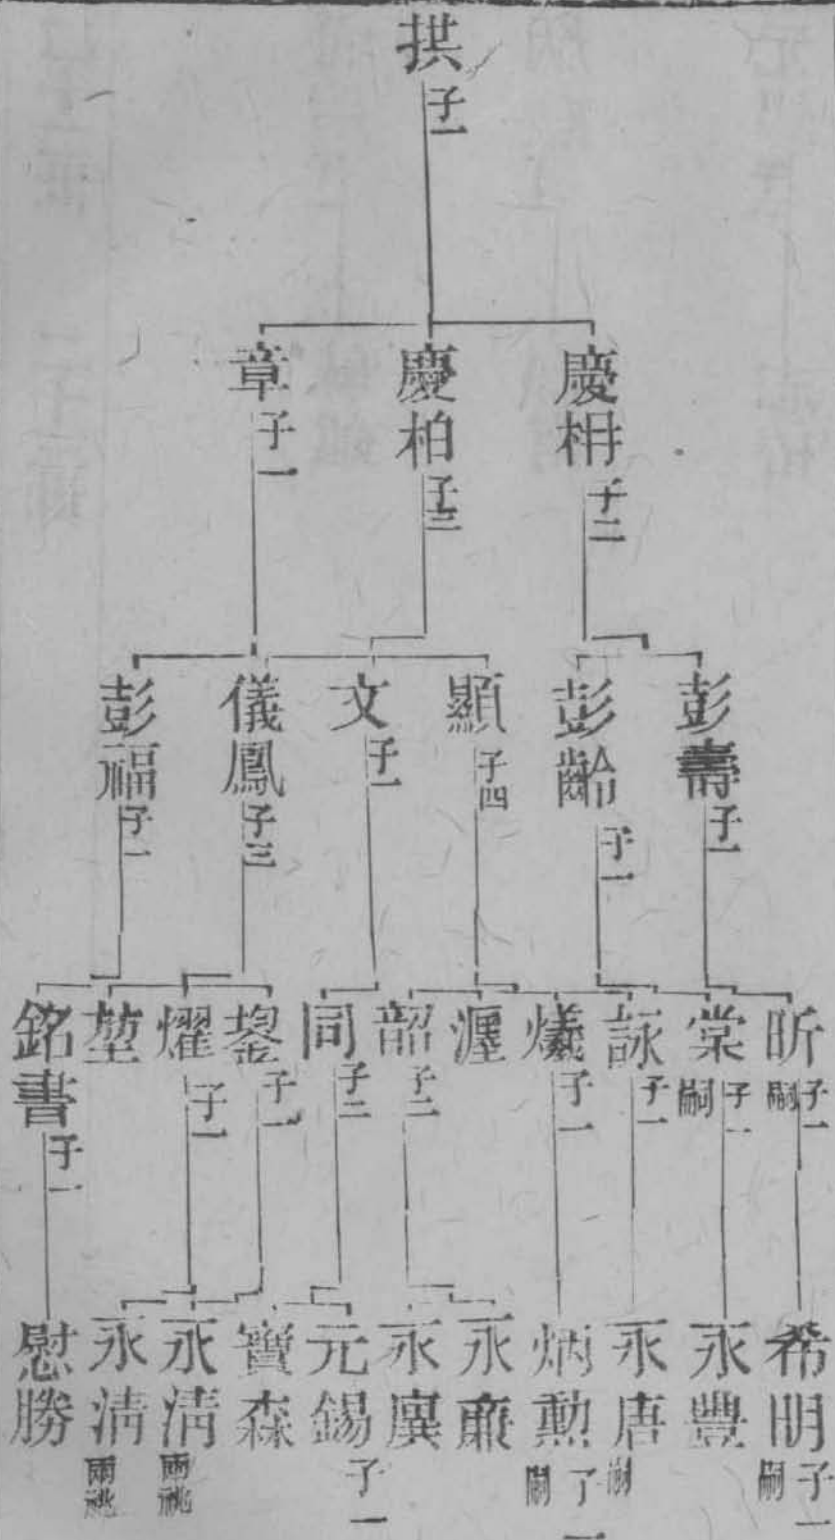 拱 子一
慶枏 子二
慶柏 子三
章 子一
彭壽 子一
彭齡 子一
顯 子四
文 子一
儀鳳 子三
彭福 子一
昕 子一 嗣
棠 子一 嗣
詠 子一
爔 子一
湹
韶 子二
同 子二
鋆 子一
燿 子一
堃
銘書 子一
希明 子一 嗣
永豐
永唐
炳勲 子一 嗣
永廉
永廙
元錫 子一
寶森
永淸 兩祧
永淸 兩祧
慰勝